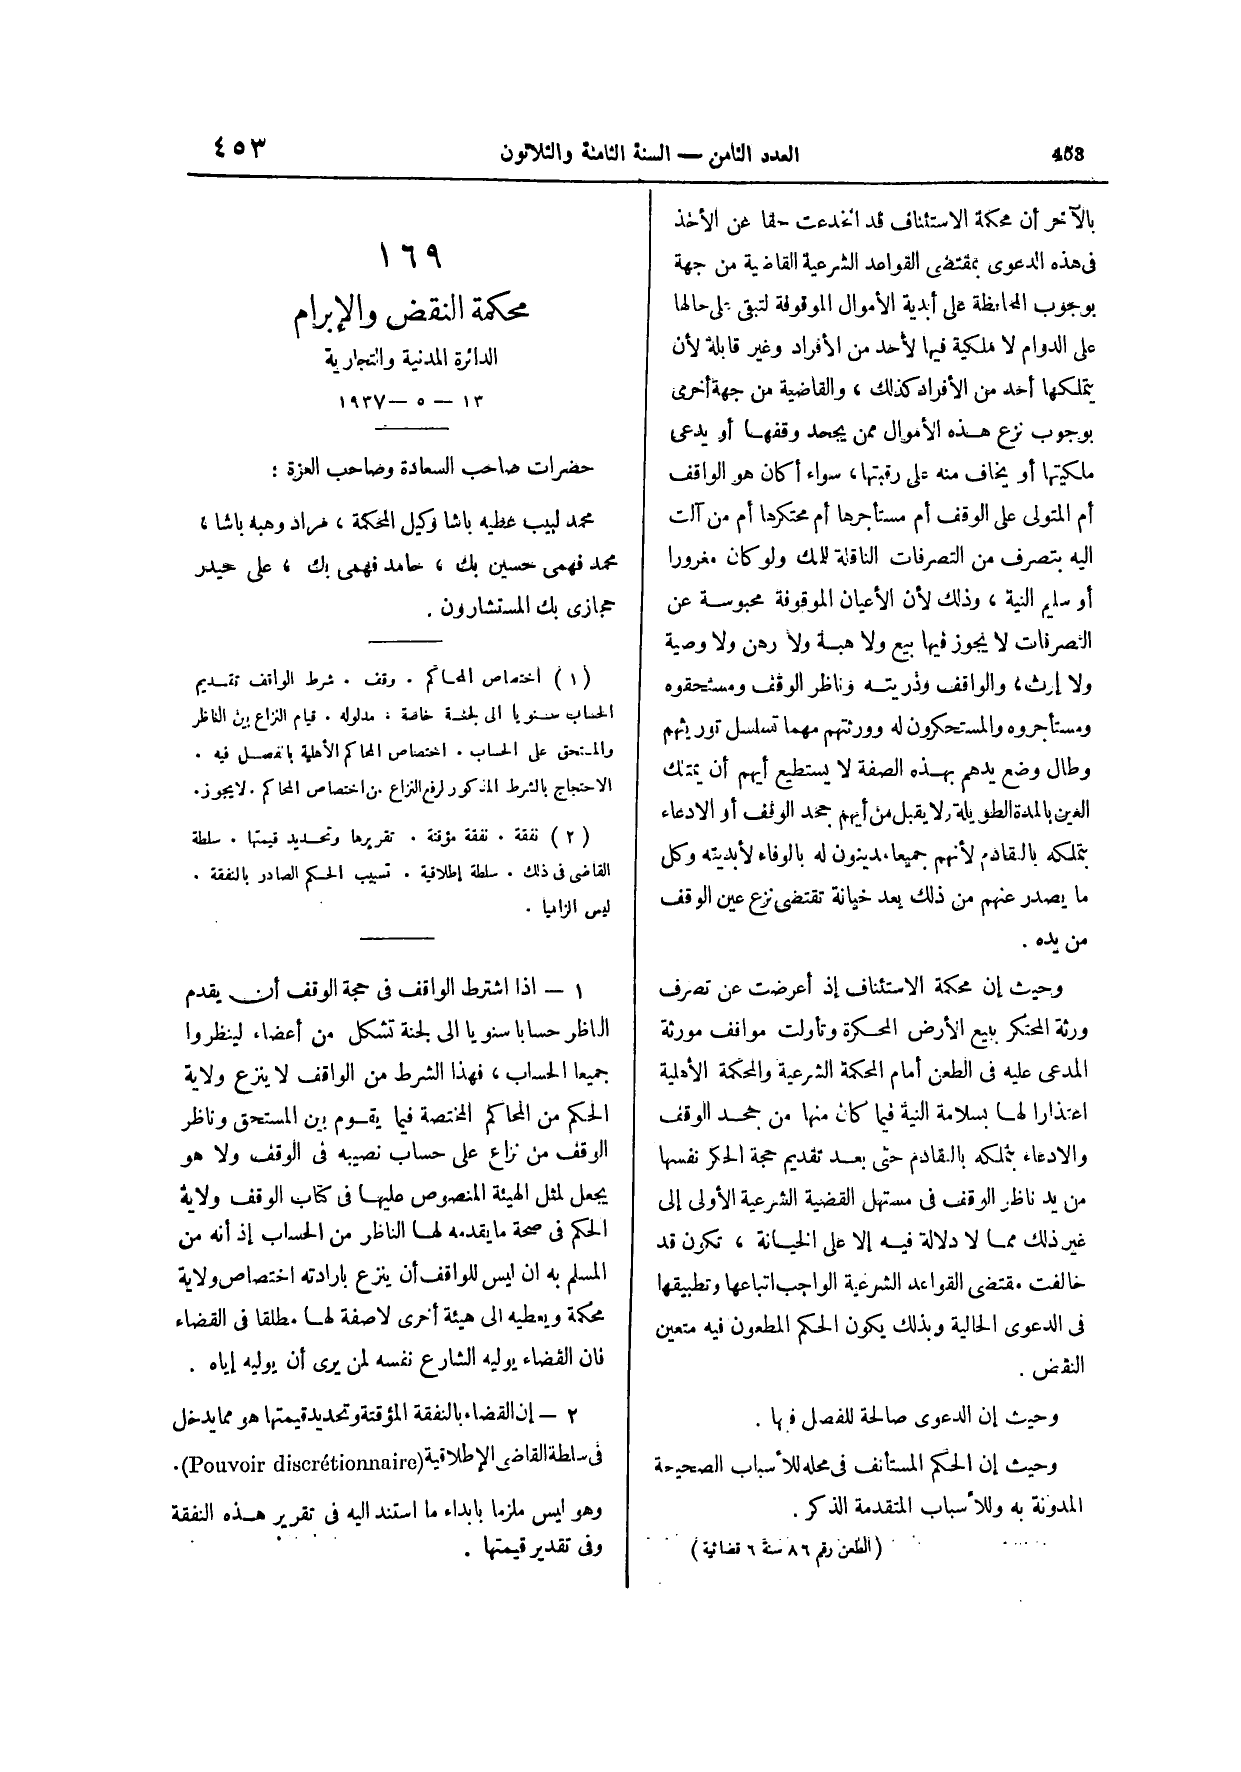 453
العدد الثامن — السنة الثامنة والثلاثون
٤٥٣
بالآخر أن محكمة الاستئناف قد انخدعت حقا عن الأخذ
فى هذه الدعوى بمقتضى القواعد الشرعية القاضية من جهة
بوجوب المحافظة على أبدية الأموال الموقوفة لتبقى على حالها
على الدوام لا ملكية فيها لأحد من الأفراد وغير قابلة لأن
يتملكها أحد من الأفراد كذلك ، والقاضية من جهة أخرى
بوجوب نزع هذه الأموال ممن يجحد وقفها أو يدعى
ملكيتها أو يخاف منه على رقبتها، سواء أكان هو الواقف
أم المتولى على الوقف أم مستأجرها أم محتكرها أم من آلت
اليه بتصرف من التصرفات الناقلة للملك ولو كان مغرورا
أو سليم النية ، وذلك لأن الأعيان الموقوفة محبوسة عن
التصرفات لا يجوز فيها بيع ولا هبة ولا رهن ولا وصية
ولا إرث، والواقف وذريته وناظر الوقف ومستحقوه
ومستأجروه والمستحكرون له وورثتهم مهما تسلسل توريثهم
وطال وضع يدهم بهذه الصفة لا يستطيع أيهم أن يمتلك
العين بالمدة الطويلة، لا يقبل من أيهم جحد الوقف أو الادعاء
بتملكه بالتقادم لأنهم جميعا مدينون له بالوفاء لأبديته وكل
ما يصدر عنهم من ذلك يعد خيانة تقتضى نزع عين الوقف
من يده .
وحيث إن محكمة الاستئناف إذ أعرضت عن تصرف
ورثة المحتكر ببيع الأرض المحكرة وتأولت مواقف مورثة
المدعى عليه فى الطعن أمام المحكمة الشرعية والمحكمة الأهلية
اعتذارا لها بسلامة النية فيما كان منها من جحد الوقف
والادعاء بتملكه بالتقادم حتى بعد تقديم حجة الحكر نفسها
من يد ناظر الوقف فى مستهل القضية الشرعية الأولى إلى
غير ذلك مما لا دلالة فيه إلا على الخيانة ، تكون قد
خالفت مقتضى القواعد الشرعية الواجب اتباعها وتطبيقها
فى الدعوى الحالية وبذلك يكون الحكم المطعون فيه متعين
النقض .
وحيث إن الدعوى صالحة للفصل فيها .
وحيث إن الحكم المستأنف فى محله للأسباب الصحيحة
المدونة به وللأسباب المتقدمة الذكر .
( الطعن رقم ٨٦ سنة ٦ قضائية )
١٦٩
محكمة النقض والإبرام
الدائرة المدنية والتجارية
١٣ — ٥ — ١٩٣٧
حضرات صاحب السعادة وصاحب العزة :
محمد لبيب عطيه باشا وكيل المحكمة ، مراد وهبه باشا ،
محمد فهمى حسين بك ، حامد فهمى بك ، على حيدر
حجازى بك المستشارون .
( ١ ) اختصاص المحاكم . وقف . شرط الواقف تقديم
الحساب سنويا الى لجنة خاصة . مدلوله . قيام النزاع بين الناظر
والمستحق على الحساب . اختصاص المحاكم الأهلية بالفصل فيه .
الاحتجاج بالشرط المذكور لرفع النزاع من اختصاص المحاكم . لا يجوز .
( ٢ ) نفقة . نفقة مؤقتة . تقريرها وتحديد قيمتها . سلطة
القاضى فى ذلك . سلطة إطلاقية . تسبيب الحكم الصادر بالنفقة .
ليس الزاميا .
١ — اذا اشترط الواقف فى حجة الوقف أن يقدم
الناظر حسابا سنويا الى لجنة تشكل من أعضاء لينظروا
جميعا الحساب ، فهذا الشرط من الواقف لا ينزع ولاية
الحكم من المحاكم المختصة فيما يقوم بين المستحق وناظر
الوقف من نزاع على حساب نصيبه فى الوقف ولا هو
يجعل لمثل الهيئة المنصوص عليها فى كتاب الوقف ولاية
الحكم فى صحة ما يقدمه لها الناظر من الحساب إذ أنه من
المسلم به ان ليس للواقف أن ينزع بارادته اختصاص ولاية
محكمة ويعطيه الى هيئة أخرى لا صفة لها مطلقا فى القضاء
فان القضاء يوليه الشارع نفسه لمن يرى أن يوليه إياه .
٢ — إن القضاء بالنفقة المؤقتة وتحديد قيمتها هو مما يدخل
فى سلطة القاضى الإطلاقية (Pouvoir discrétionnaire).
وهو ليس ملزما بابداء ما استند اليه فى تقرير هذه النفقة
وفى تقدير قيمتها .